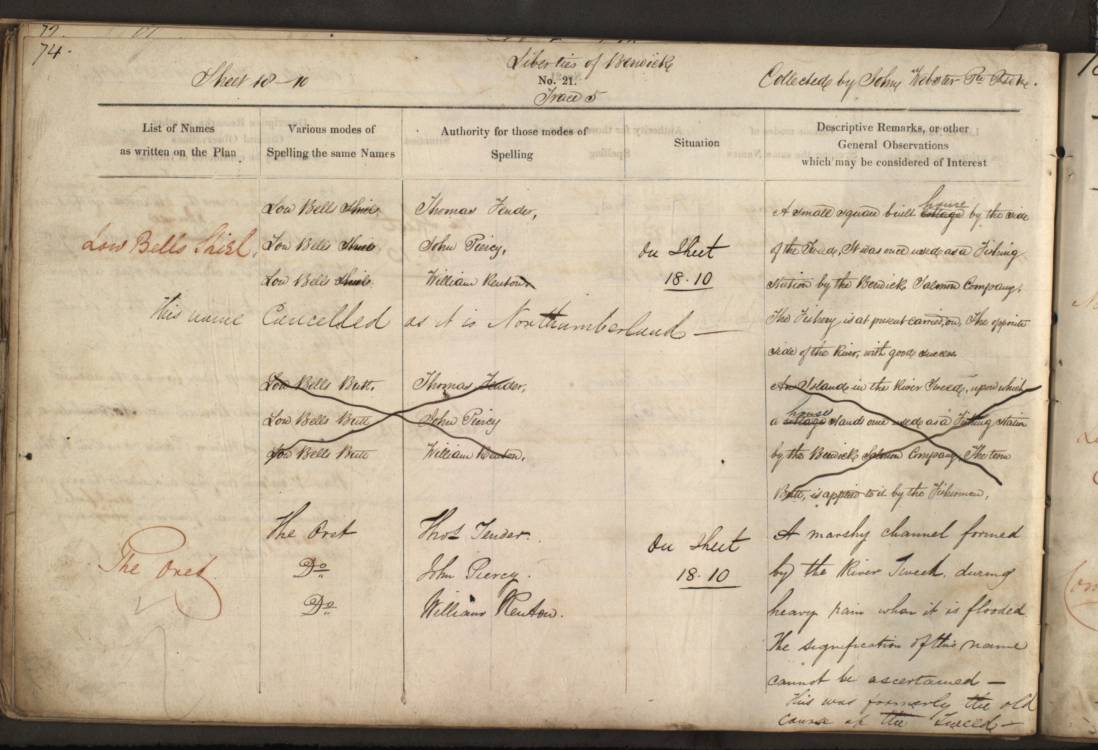 74.
Sheet 18-10
Liberties of Berwick
No. 21.
Trace 5
Collected by John Webster
List of Names
as written on the Plan
Various modes of
Spelling the same Names
Authority for those modes of
Spelling
Situation
Descriptive Remarks, or other
General Observations
which may be considered of Interest
Low Bells Shiel.
Low Bells Shiel
Low Bells Shiel
Low Bells Shiel
Thomas Tender,
John Piercy,
William Renton
On Sheet
18.10
A small square built cottage house by the side
of the Tweed, It was once used as a Fishing
station by the Berwick Salmon Company.
The Fishery is at present carried on, The opposite
side of the River, with good success
This name Cancelled as it is Northumberland —
Low Bells Butt
Low Bells Butt
Low Bells Butt
Thomas Tender,
John Piercy
William Renton,
An Island in the River Tweed, upon which
a cottage house stands once used as a Fishing station
by the Berwick Salmon Company, The term
Butt, is applied to it by the Fishermen,
The Oxet
The Oxet
Do
Do
Thos Tender.
John Piercy.
William Renton.
On Sheet
18.10
A marshy channel formed
by the River Tweed, during
heavy rain when it is flooded
The signification of this name
cannot be ascertained —
This was formerly the old
course of the Tweed —